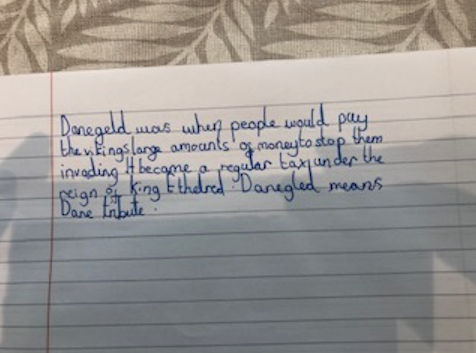 Danegeld was when people would pay
the vikings large amounts of money to stop them
invading It became a regular tax under the
reign of King Ethelred. Danegled means
Dane tribute.